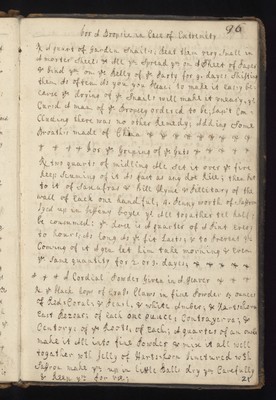 96
for A Dropsie in Case of Extremity
A quart of Garden Snails, beat them very small in
A morter shell & All yn spread ym on A sheet of paper
& bind ym on ye Belly of ye Party for 9: days shifting
them As often As you
cause ye Drying of ye Snails will make it uneasy, yis
Cured A man of ye Dropsey ordered to be, but Con
Cluding there was no other Remedy; Adding Some
Broaths made of
for ye Griping of ye Guts
Take two quarts of midling Ale set it over ye fire
keep scumming of it As fast as any doth Rise; then put
to it of Saxafras & hill thyme & Pellitary of the
wall of Each one handfull, A penny worth of Saffron
tyed up in A penny boyle yt All together till half
be consumed: ye Dose is A quarter of A Pint every
to hours, As long As ye fitt Lasts; & to Prevent ye
Coming of it Agen let him take morning & Even
ye same quantity for 2 or 3: days;
A Cordial Powder Given in A feaver
R ye black tops of Crabs Claws in fine Powder 2 ounces
of Red Corall & Pearl, & white Amber, & Hartshorn
East Bezoar; of each one ounce; Contrayerva; &
Centory; of ye Roots, of Each; A quarter of an ounce
make it All into fine Powder & mix it All well
together wth Jelly of Hartshorn tinctured wth
Saffron make ym up in Little Balls dry ym Carefully
& keep ym for use;